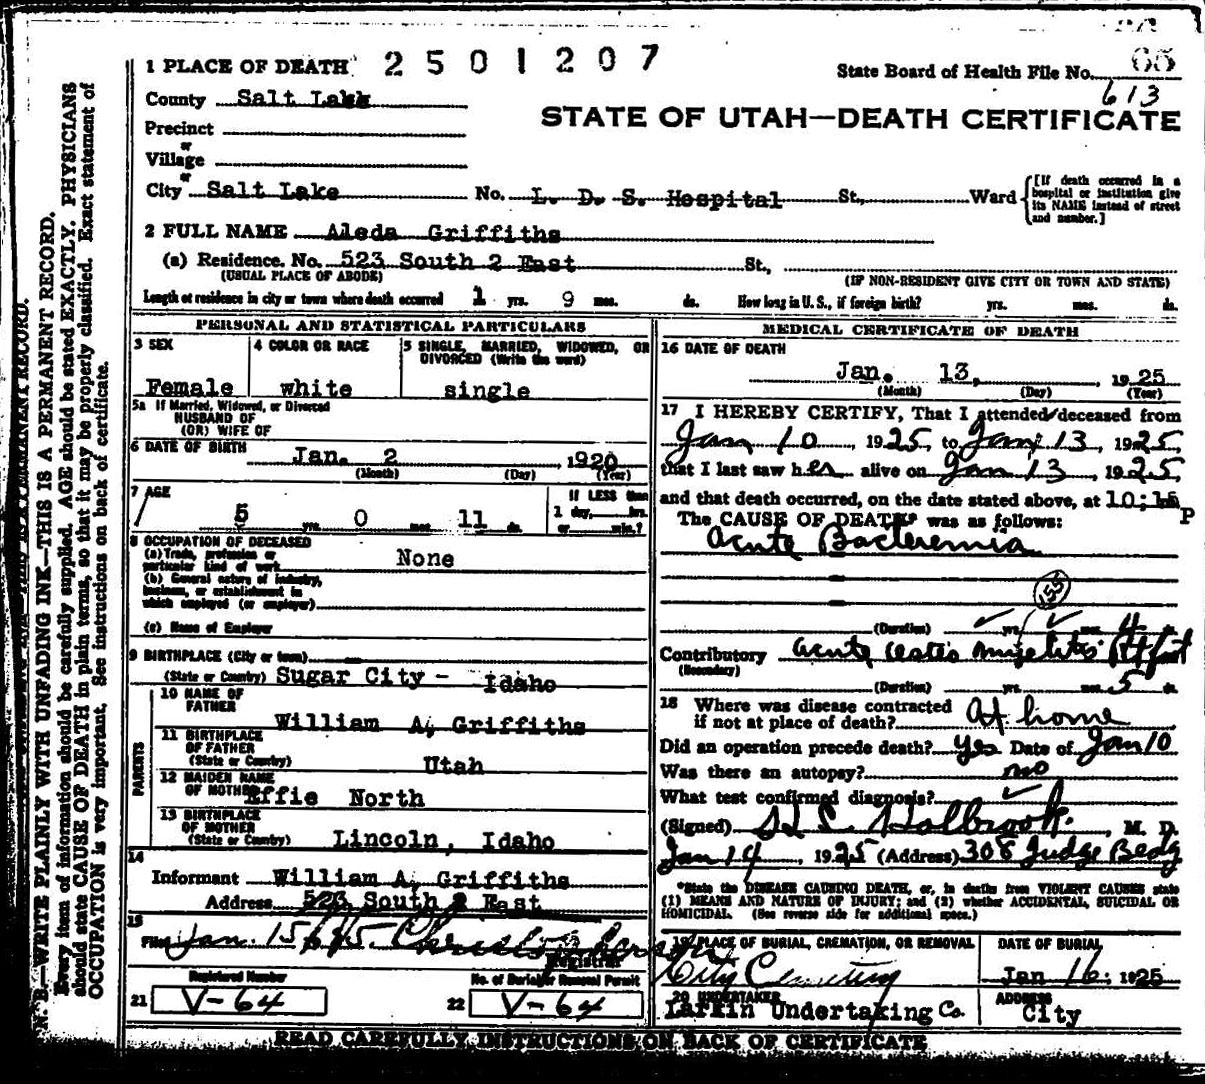 1 PLACE OF DEATH 2501207
State Board of Health File No. 65
613
County Salt Lake
STATE OF UTAH—DEATH CERTIFICATE
Precinct
or
Village
or
City Salt Lake No. L. D. S. Hospital St., Ward
[If death occurred in a hospital or institution give its NAME instead of street and number.]
2 FULL NAME Aleda Griffiths
(a) Residence. No. 523 South 2 East St.,
(USUAL PLACE OF ABODE) (IF NON-RESIDENT GIVE CITY OR TOWN AND STATE)
Length of residence in city or town where death occurred 1 yrs. 9 mos. ds. How long in U. S., if foreign birth? yrs. mos. ds.
PERSONAL AND STATISTICAL PARTICULARS
3 SEX
Female
4 COLOR OR RACE
white
5 SINGLE, MARRIED, WIDOWED, OR DIVORCED (Write the word)
single
5a If Married, Widowed, or Divorced
HUSBAND OF
(OR) WIFE OF
6 DATE OF BIRTH
Jan. 2 1920
(Month) (Day) (Year)
7 AGE
5 yrs. 0 mos. 11 ds.
If LESS than
1 day, hrs.
or min.?
8 OCCUPATION OF DECEASED
(a) Trade, profession or
particular kind of work None
(b) General nature of industry,
business, or establishment in
which employed (or employer)
(c) Name of Employer
9 BIRTHPLACE (City or town)
(State or Country) Sugar City - Idaho
PARENTS
10 NAME OF
FATHER
William A. Griffiths
11 BIRTHPLACE
OF FATHER
(State or Country) Utah
12 MAIDEN NAME
OF MOTHER Effie North
13 BIRTHPLACE
OF MOTHER
(State or Country) Lincoln, Idaho
14
Informant William A. Griffiths
Address 523 South 2 East
15
Filed Jan. 15
Registrar
Registered Number
21 V-64
No. of Burial or Removal Permit
22 V-64
MEDICAL CERTIFICATE OF DEATH
16 DATE OF DEATH
Jan. 13, 1925
(Month) (Day) (Year)
17 I HEREBY CERTIFY, That I attended deceased from
Jan 10, 1925, to Jan 13, 1925,
that I last saw her alive on Jan 13, 1925,
and that death occurred, on the date stated above, at 10:15 P m
The CAUSE OF DEATH* was as follows:
Acute Bacteremia
155
(Duration) yrs. mos. 4 ds.
Contributory Acute
(Secondary)
(Duration) yrs. mos. 5 ds.
18 Where was disease contracted
if not at place of death? At home
Did an operation precede death? Yes Date of Jan 10
Was there an autopsy? no
What test confirmed diagnosis?
(Signed) Holbrook, M. D.
Jan 14, 1925 (Address) 308 Judge Bldg
*State the DISEASE CAUSING DEATH, or, in deaths from VIOLENT CAUSES state
(1) MEANS AND NATURE OF INJURY; and (2) whether ACCIDENTAL, SUICIDAL OR
HOMICIDAL. (See reverse side for additional space.)
19 PLACE OF BURIAL, CREMATION, OR REMOVAL
City Cemetery
DATE OF BURIAL
Jan 16, 1925
20 UNDERTAKER
Larkin Undertaking Co.
ADDRESS
City
READ CAREFULLY INSTRUCTIONS ON BACK OF CERTIFICATE
N. B.—WRITE PLAINLY WITH UNFADING INK—THIS IS A PERMANENT RECORD.
Every item of information should be carefully supplied. AGE should be stated EXACTLY. PHYSICIANS
should state CAUSE OF DEATH in plain terms, so that it may be properly classified. Exact statement of
OCCUPATION is very important. See instructions on back of certificate.